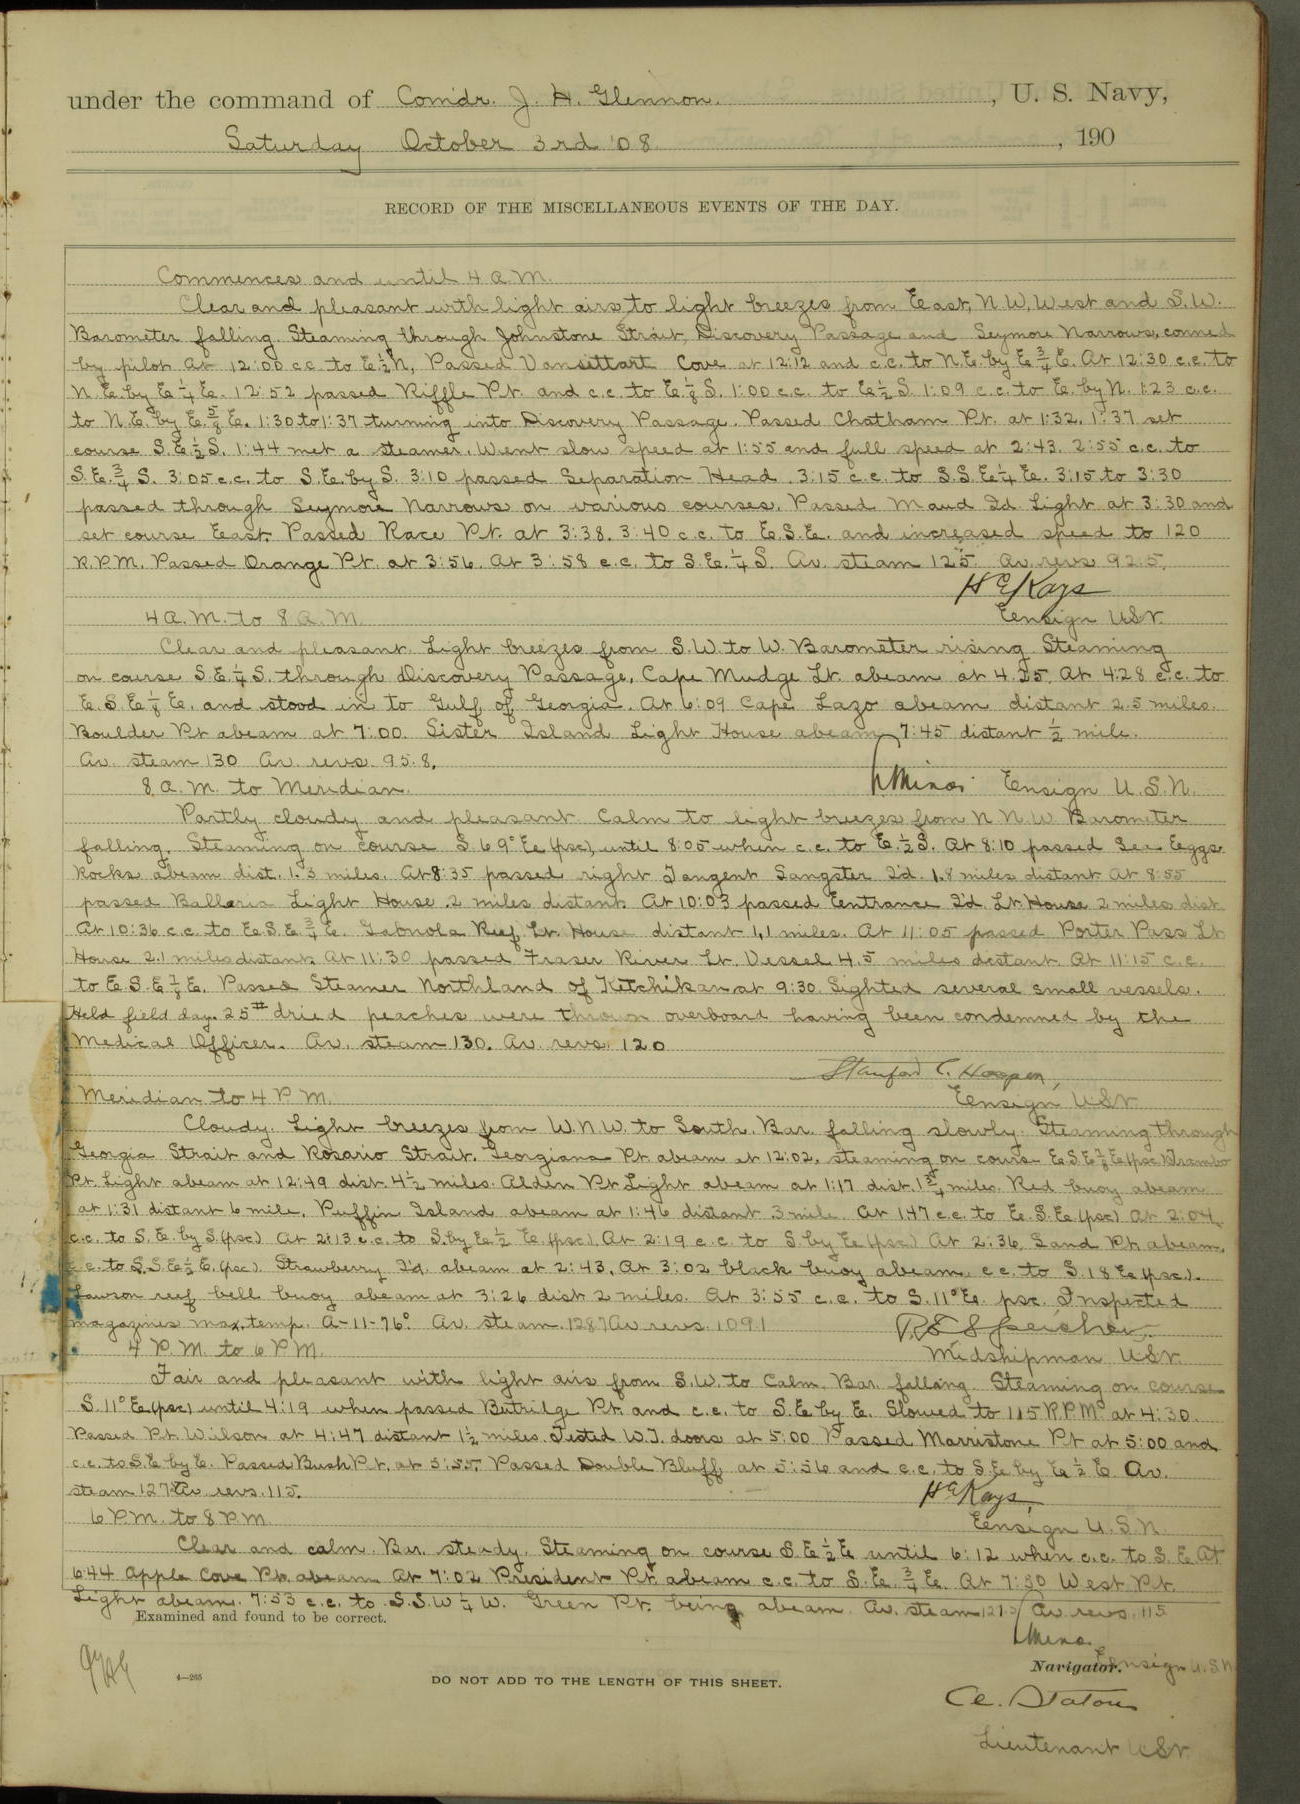 under the command of Comdr. J. H. Glennon. , U. S. Navy,
Saturday October 3rd '08 , 190
RECORD OF THE MISCELLANEOUS EVENTS OF THE DAY.
Commences and until 4 A.M.
Clear and pleasant with light airs to light breezes from East, N.W, West and S.W.
Barometer falling. Steaming through Johnstone Strait, Discovery Passage and Seymore Narrows, conned
by pilot. At 12:00 c.c. to E½N, Passed Vansittart Cove at 12:12 and c.c. to N.E. by E ¾ E. At 12:30 c.c. to
N.E. by E ¼ E. 12:52 passed Riffle Pt. and c.c. to E ⅛ S. 1:00 c.c. to E ½ S. 1:09 c.c. to E. by N. 1:23 c.c.
to N.E. by E. ⅝ E. 1:30 to 1:37 turning into Discovery Passage. Passed Chatham Pt. at 1:32. 1:37 set
course S.E ½ S. 1:44 met a steamer. Went slow speed at 1:55 and full speed at 2:43. 2:55 c.c. to
S.E. ¾ S. 3:05 c.c. to S.E. by S. 3:10 passed Separation Head. 3:15 c.c. to S.S.E ¼ E. 3:15 to 3:30
passed through Seymore Narrows on various courses. Passed Maud Id Light at 3:30 and
set course East. Passed Race Pt. at 3:38. 3:40 c.c. to E.S.E. and increased speed to 120
R.P.M. Passed Orange Pt. at 3:56. At 3:58 c.c. to S.E. ¼ S. Av. steam 125 Av. revs 92.5.
H E Kays
4 A.M. to 8 A.M. Ensign USN.
Clear and pleasant. Light breezes from S.W. to W. Barometer rising. Steaming
on course S.E ¼ S. through Discovery Passage, Cape Mudge Lt. abeam at 4.25. At 4:28 c.c. to
E.S.E ⅛ E. and stood in to Gulf of Georgia. At 6:09 Cape Lazo abeam distant 2.5 miles.
Boulder Pt abeam at 7:00. Sister Island Light House abeam 7:45 distant ½ mile.
Av. steam 130 Av. revs. 95.8.
8 A.M. to Meridian. Ensign U.S.N.
Partly cloudy and pleasant. Calm to light breezes from N N.W. Barometer
falling. Steaming on course S.69°E (psc), until 8:05 when c.c. to E. ½ S. At 8:10 passed Sea Eggs
Rocks abeam dist. 1.3 miles. At 8:35 passed right Tangent Sangster I'd. 1.8 miles distant. At 8:55
passed Ballaria Light House .2 miles distant. At 10:03 passed Entrance I'd. Lt House 2 miles dist.
At 10:36 c.c. to E.S.E ¾ E. Gabnola Reef Lt. House distant 1.1 miles. At 11:05 passed Porter Pass Lt
House 2.1 miles distant. At 11:30 passed Fraser River Lt. Vessel 4.5 miles distant. At 11:15 c.c.
to E.S.E ⅞ E. Passed Steamer Northland of Ketchikan at 9:30. Sighted several small vessels.
Held field day. 25# dried peaches were thrown overboard having been condemned by the
Medical Officer. Av. steam 130. Av. revs. 120
Stanford C. Hooper,
Meridian to 4 P M. Ensign USN.
Cloudy. Light breezes from W.N.W. to South. Bar. falling slowly. Steaming through
Georgia Strait and Rosario Strait. Georgiana Pt. abeam at 12:02, steaming on course E.S.E ⅞ E (psc)
Pt. Light abeam at 12:49 dist. 4½ miles. Alden Pt Light abeam at 1:17 dist. 1 ¾ miles. Red buoy abeam
at 1:31 distant 6 mile. Puffin Island abeam at 1:46 distant 3 mile. At 1:47 c.c. to E.S.E (psc) At 2:04
c.c. to S.E. by S. (psc) At 2:13 c.c. to S. by E ½ E. (psc). At 2:19 c.c. to S. by E (psc) At 2:36, Sand Pt. abeam,
c.c. to S.S.E ½ E. (psc). Strawberry I'd. abeam at 2:43. At 3:02 black buoy abeam, c.c. to S.18 E (psc).
Lawson reef bell buoy abeam at 3:26 dist. 2 miles. At 3:55 c.c. to S.11°E. psc. Inspected
magazines max. temp. A-11-76° Av. steam 128.7 Av revs. 109.1
4 P.M. to 6 P.M. Midshipman USN.
Fair and pleasant with light airs from S.W. to Calm. Bar. falling. Steaming on course
S.11°E (psc) until 4:19 when passed Butrilge Pt. and c.c. to S.E by E. Slowed to 115 R.P.M. at 4:30.
Passed Pt. Wilson at 4:47 distant 1½ miles. Tested W.T. doors at 5:00 Passed Marristone Pt at 5:00 and
c.c. to S.E by E. Passed Bush Pt. at 5:55. Passed Double Bluff at 5:56 and c.c. to S.E by E ½ E. Av.
steam 127 Av. revs. 115.
H E Kays,
6 P.M. to 8 P.M. Ensign U.S.N.
Clear and calm. Bar. steady. Steaming on course S.E ½ E until 6:12 when c.c. to S.E At
6:44 Apple Cove Pt. abeam. At 7:02 President Pt. abeam c.c. to S.E. ¾ E. At 7:30 West Pt.
Light abeam. 7:53 c.c. to S.S.W ¼ W. Green Pt. being abeam. Av. steam Av. revs. 115
Examined and found to be correct.
Ensign U.S.N
Navigator.
4—265
DO NOT ADD TO THE LENGTH OF THIS SHEET.
Lieutenant USN.